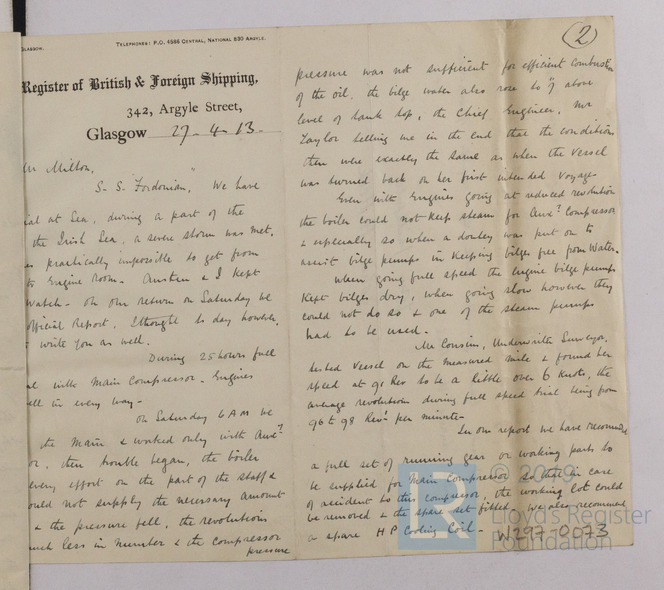 GLASGOW.
TELEPHONES: P.O. 4986 CENTRAL, NATIONAL 630 ARGYLE.
Register of British & Foreign Shipping,
342, Argyle Street,
Glasgow 27-4-13-
Milton,
S-S. "Fordonian", We have
at Sea, during a part of the
the Irish Sea, a severe storm was met,
practically impossible to get from
to Engine Room. Austen & I kept
watch. On our return on Saturday we
official Report, I thought to day however,
write you as well.
During 25 hours full
with Main Compressor. Engines
well in every way-
On Saturday 6 AM we
the Main & worked only with Aux?
then trouble began, the boiler
every effort on the part of the staff &
could not supply the necessary amount
& the pressure fell, the revolutions
much less in number & the compressor
pressure
(2)
pressure was not sufficient for efficient combustion
of the oil, the bilge water also rose to above
level of tank top, the Chief Engineer, Mr
Taylor telling me in the end that the conditions
then were exactly the same as when the vessel
was turned back on her first intended voyage-
Even with Engines going at reduced revolutions
the boiler could not keep steam for Aux? Compressor
& especially so when a donkey was put on to
assist bilge pumps in keeping bilges free from Water.
When going full speed the engine bilge pumps
kept bilges dry, when going slow however they
could not do so & one of the steam pumps
had to be used.
Mr Cousin, Underwriters Surveyor,
tested vessel on the measured mile & found her
speed at 91 Rev to be a little over 6 Knots, the
average revolutions during full speed trial being from
96 to 98 Rev? per minute-
In our report we have recommended
a full set of running gear or working parts to
be supplied for Main Compressor so that in case
of accident to this compressor, the working lot could
be removed & the spare set fitted, we also recommend
a spare H P Cooling Coil-
W297-0073
© 2019
LR
Lloyd's Register
Foundation